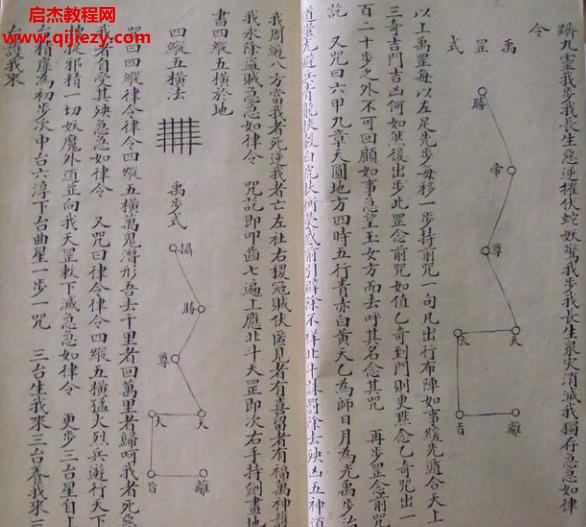 启杰教程网
www.qijiezy.com
蹄九灵我步我长生恶逆摧伏蛇妖万我步我长生众灾消灭我独存急急如律
令
禹罡式
勝
帝
尊
天
衣
旨
離
以上禹罡每以左足先步每移一步持前咒一句凡出行布陣如事緩先適合天上
三奇吉門吉凶何如然後出步此罡念前咒如值乙奇到門則更默念乙奇咒出一
百二十步之外不可回顧如事急望玉女方而去呼其名念其咒 再步罡念前咒
訖 又咒曰六甲九章天圓地方四時五行青赤白黄天乙為師日月為光禹步治
我周遊八方當我者死逆我者亡左社右稷冦賊伏匿見者有喜留者有福萬神護
我水除盜賊急急如律令 咒訖即叩齒七遍上應北斗天罡即次右手持劍畫地
書四縱五横於地
四縱五横法
禹步式
攝
勝
尊
天
大
旨
離
咒曰四縱律令律令四縱五横萬鬼潜形吾去千里者回萬里者歸呵我者死惡
我者自受其殃急急如律令 又咒曰律令律令四縱五横猛火烈兵遊行天下
邪精一切妖魔外道並向我天罡敕下滅急急如律令 更步三台星自上
台精度為初步次中台六淳下台曲星一步一咒 三台生我來三台養我來三
台護我來